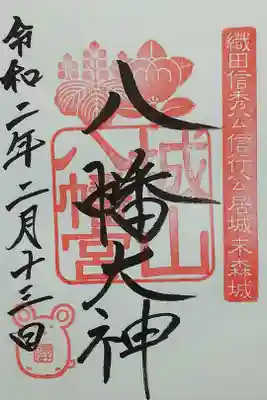 織田信秀公信行公居城末森城
八幡大神
城山
八幡宮
令和二年二月十三日